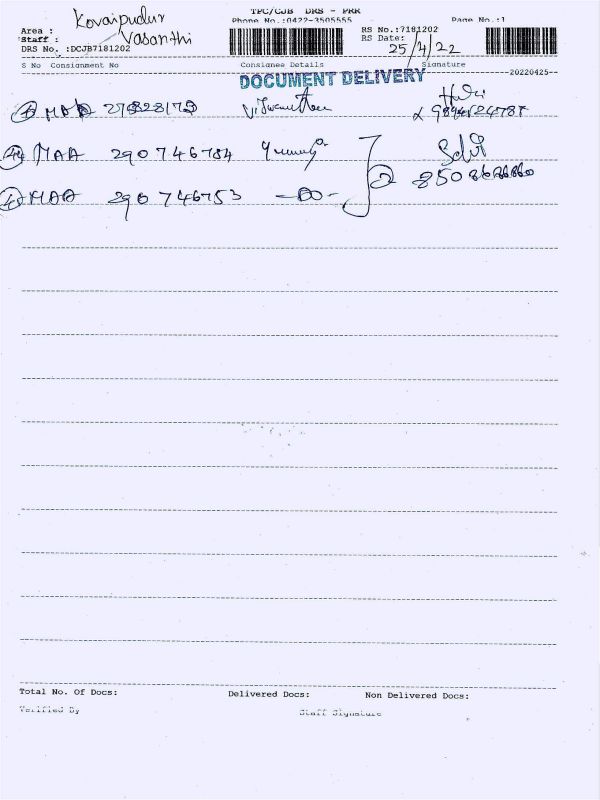 TPC/CJB DRS - PRR
Phone No.:0422-3505555 Page No.:1
Area : Kovaipudur
Staff : Vasanthi
DRS No. :DCJB7181202
RS No.:7181202
RS Date: 25/4/22
S No Consignment No Consignee Details Signature
--20220425--
DOCUMENT DELIVERY
MAA
MAA 290746784
MAA 290746753 -DO-
Total No. Of Docs: Delivered Docs: Non Delivered Docs:
Verified By Staff Signature